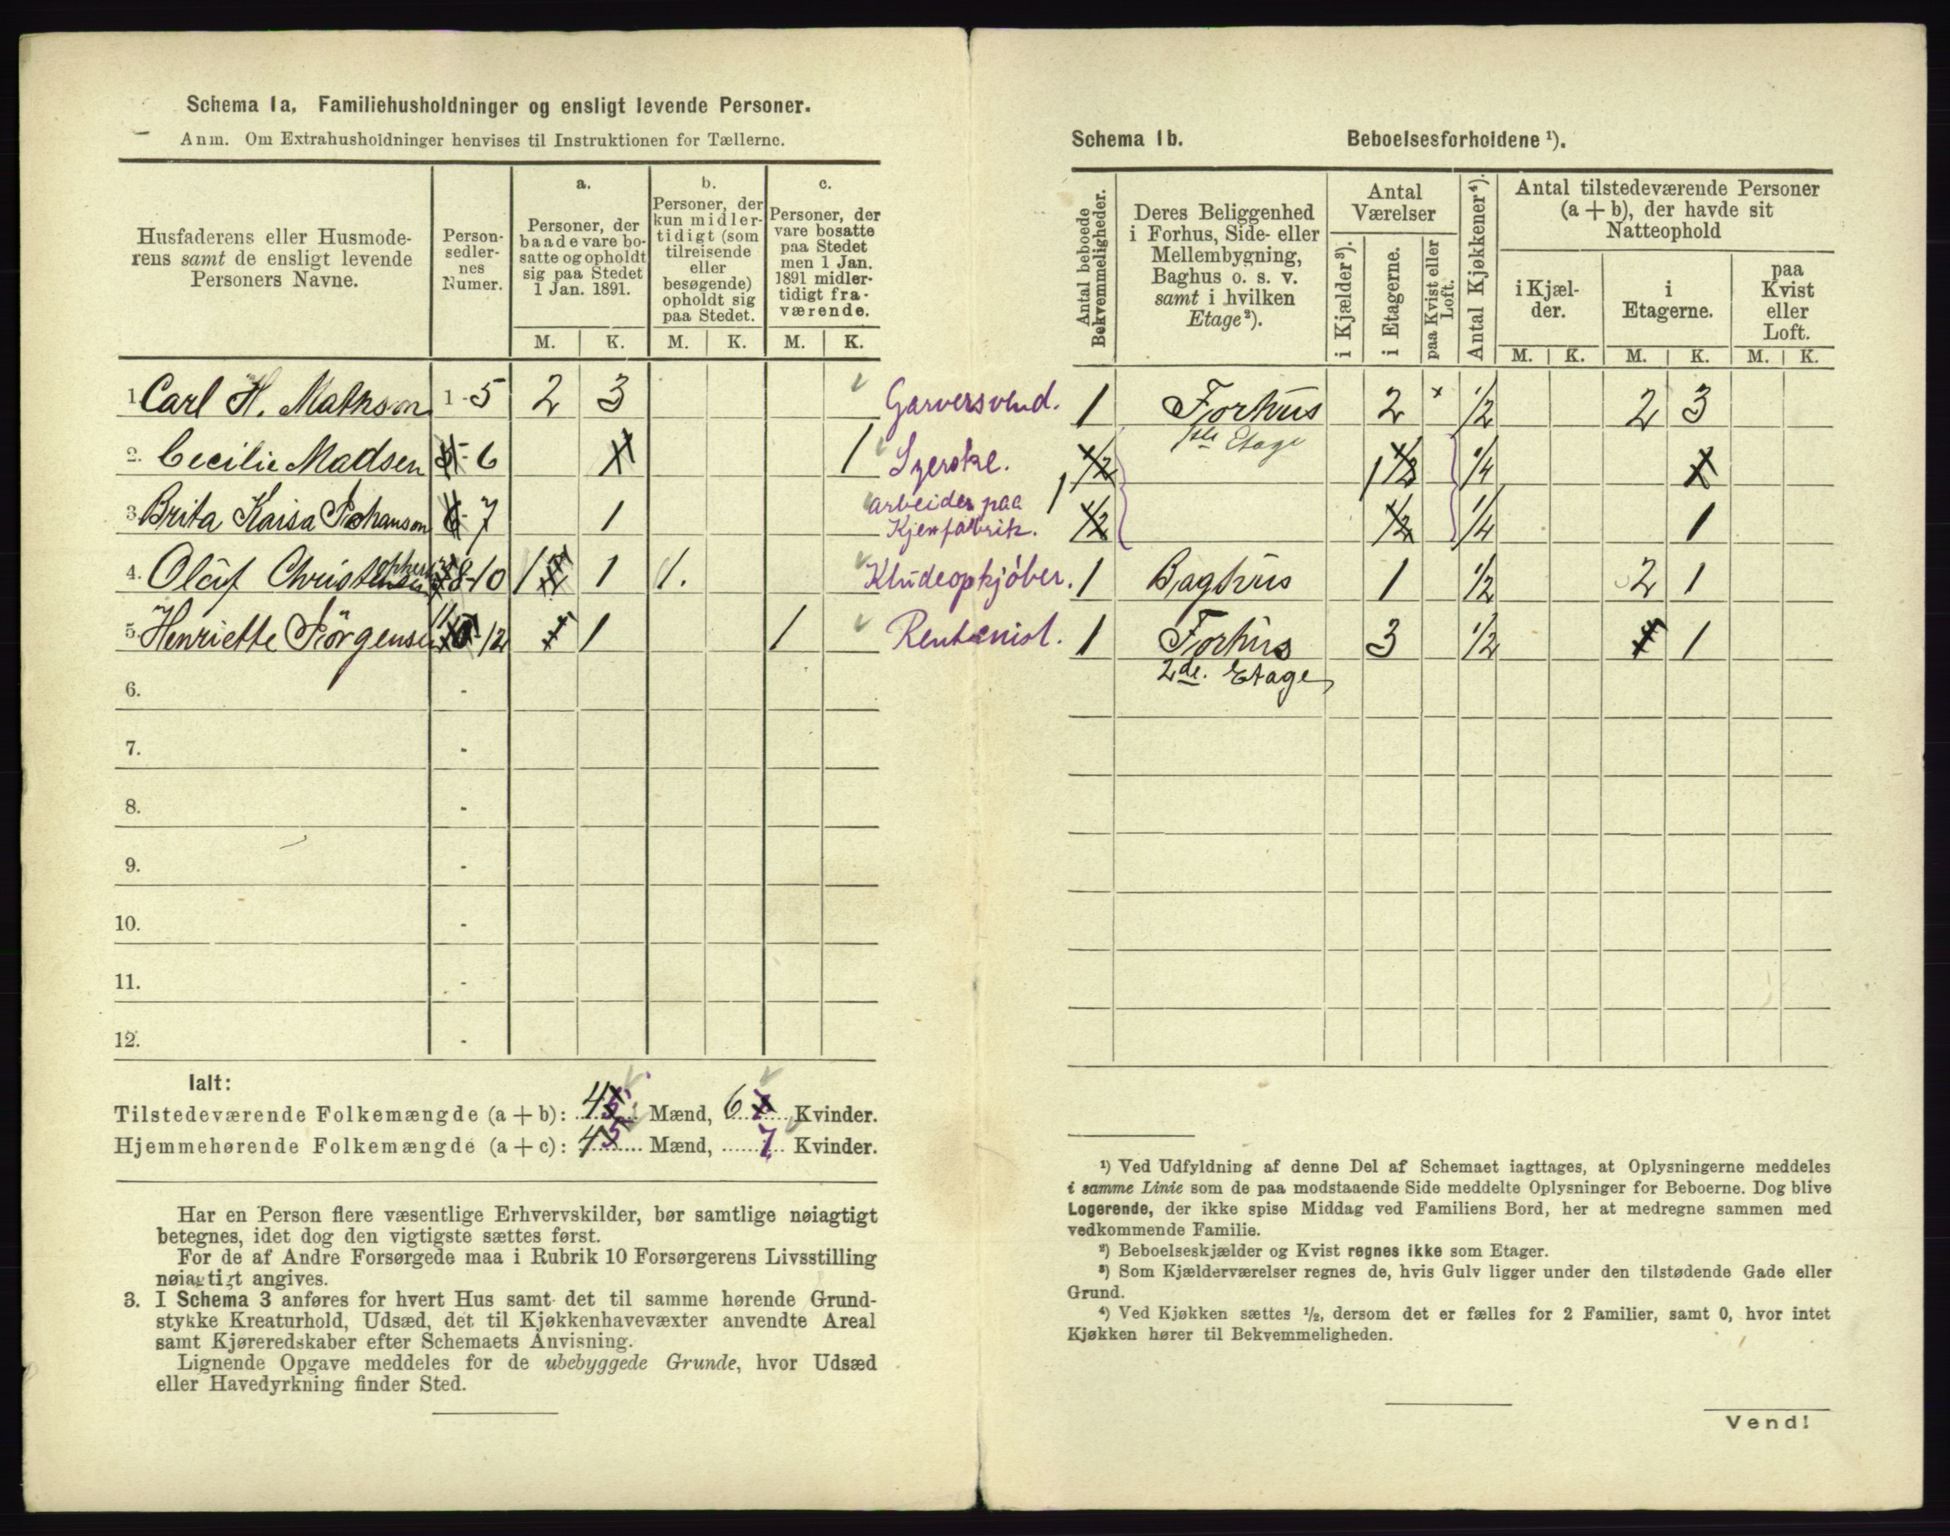 Schema 1a. Familiehusholdninger og ensligt levende Personer.
Anm. Om Extrahusholdninger henvises til Instruktionen for Tællerne.
Husfaderens eller Husmoderens samt de ensligt levende Personers Navne.
Personsedlernes Numer.
a.
Personer, der baade vare bosatte og opholdt sig paa Stedet 1 Jan. 1891.
b.
Personer, der kun midlertidigt (som tilreisende eller besøgende) opholdt sig paa Stedet.
c.
Personer, der vare bosatte paa Stedet men 1 Jan. 1891 midlertidigt fraværende.
M. K. M. K. M. K.
1. Carl H. Mathson 1 - 5 2 3 Garversvend.
2. Cecilie Madsen - 6 1 Syerske.
3. Brita Kaisa Johanson - 7 1 arbeider paa
Kjemfabrik.
4. Olaf 8-10 1 1 1. Kludeopkjøber.
5. Henriette Jörgensen 11-12 1 1 Rentenist.
6. -
7. -
8. -
9. -
10. -
11. -
12. -
Ialt:
Tilstedeværende Folkemængde (a + b): 4 Mænd, 6 Kvinder.
Hjemmehørende Folkemængde (a + c): 5 Mænd, 7 Kvinder.
Har en Person flere væsentlige Erhvervskilder, bør samtlige nøiagtigt
betegnes, idet dog den vigtigste sættes først.
For de af Andre Forsørgede maa i Rubrik 10 Forsørgerens Livsstilling
nøiagtigt angives.
3. I Schema 3 anføres for hvert Hus samt det til samme hørende Grund-
stykke Kreaturhold, Udsæd, det til Kjøkkenhavevæxter anvendte Areal
samt Kjøreredskaber efter Schemaets Anvisning.
Lignende Opgave meddeles for de ubebyggede Grunde, hvor Udsæd
eller Havedyrkning finder Sted.
Schema 1b. Beboelsesforholdene ¹).
Antal beboede Bekvemmeligheder.
Deres Beliggenhed i Forhus, Side- eller Mellembygning, Baghus o. s. v. samt i hvilken Etage²).
Antal Værelser
i Kjælder³).
i Etagerne.
paa Kvist eller Loft.
Antal Kjøkkener⁴).
Antal tilstedeværende Personer (a + b), der havde sit Natteophold
i Kjælder.
i Etagerne.
paa Kvist eller Loft.
M. K. M. K. M. K.
1 Forhus 2 × 1/2 2 3
1ste Etage
1 1/4
1/4 1
1 Baghus 1 1/2 2 1
1 Forhus 3 1/2 1
2de. Etage
¹) Ved Udfyldning af denne Del af Schemaet iagttages, at Oplysningerne meddeles
i samme Linie som de paa modstaaende Side meddelte Oplysninger for Beboerne. Dog blive
Logerende, der ikke spise Middag ved Familiens Bord, her at medregne sammen med
vedkommende Familie.
²) Beboelseskjælder og Kvist regnes ikke som Etager.
³) Som Kjælderværelser regnes de, hvis Gulv ligger under den tilstødende Gade eller
Grund.
⁴) Ved Kjøkken sættes ½, dersom det er fælles for 2 Familier, samt 0, hvor intet
Kjøkken hører til Bekvemmeligheden.
Vend!